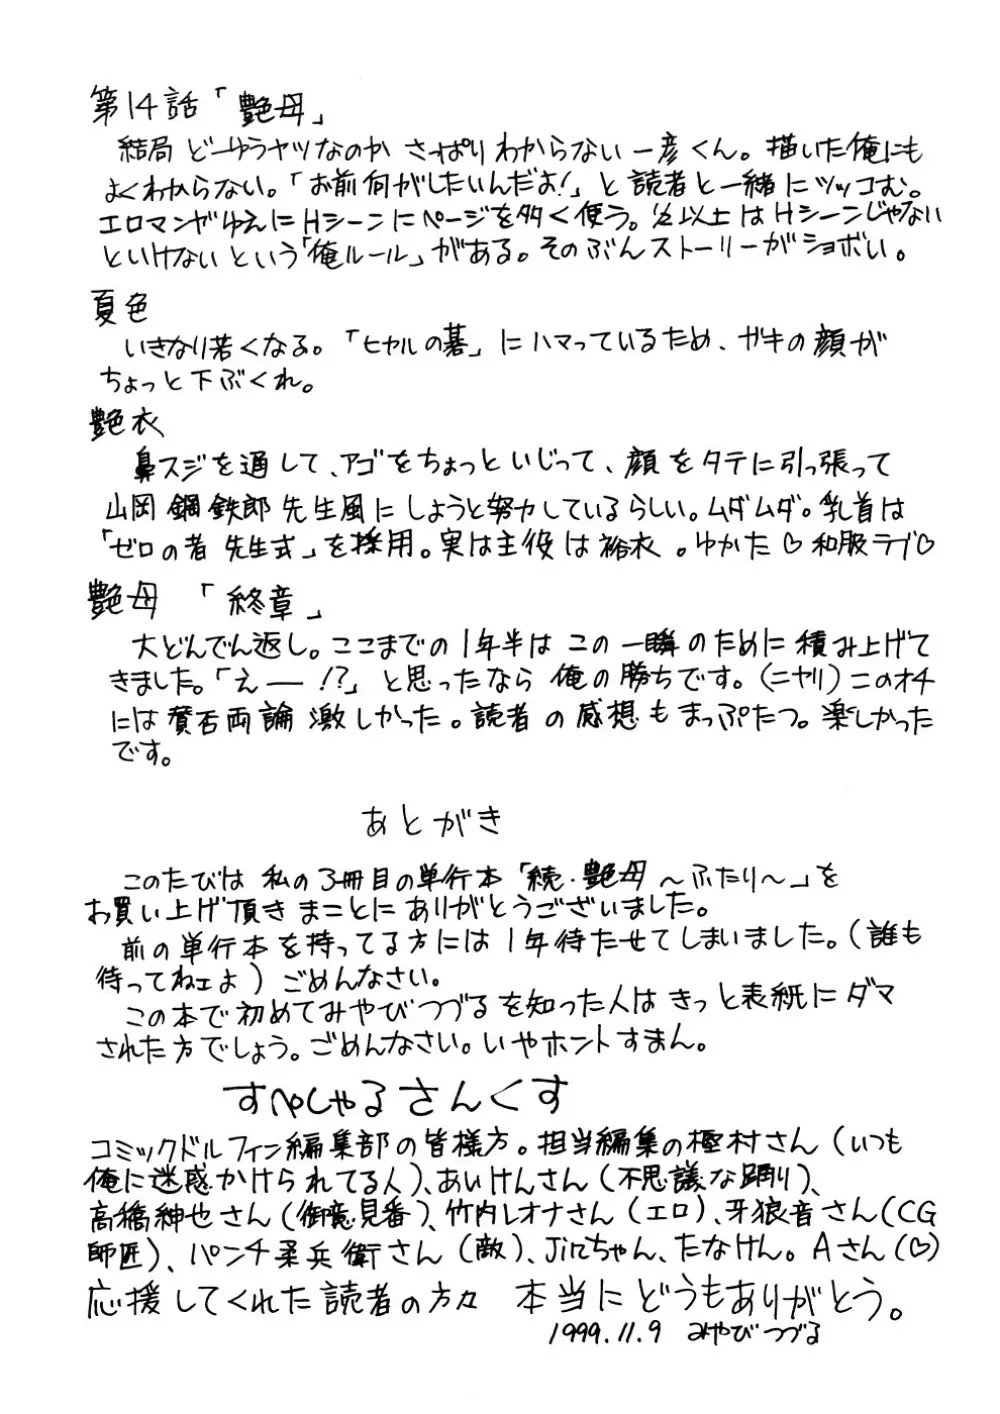 第14話「艶母」
結局どーゆうヤツなのか さっぱりわからない一彦くん。描いた俺にも
よくわからない。「お前何がしたいんだよ!」と読者と一緒にツッコむ。
エロマンガゆえにHシーンにページを多く使う。½以上はHシーンじゃない
といけないという「俺ルール」がある。そのぶんストーリーがショボい。
夏色
いきなり若くなる。「ヒカルの碁」にハマっているため、ガキの顔が
ちょっと下ぶくれ。
艶衣
鼻スジを通して、アゴをちょっといじって、顔をタテに引っ張って
山岡鋼鉄郎先生風にしようと努力しているらしい。ムダムダ。乳首は
「ゼロの者先生式」を採用。実は主役は裕衣。ゆかた♡和服ラブ♡
艶母 「終章」
大どんでん返し。ここまでの1年半はこの一瞬のために積み上げて
きました。「えー!?」と思ったなら俺の勝ちです。(ニヤリ)このオチ
には賛否両論激しかった。読者の感想もまっぷたつ。楽しかった
です。
あとがき
このたびは私の3冊目の単行本「続・艶母～ふたり～」を
お買い上げ頂きまことにありがとうございました。
前の単行本を持ってる方には1年待たせてしまいました。(誰も
待ってねェよ)ごめんなさい。
この本で初めてみやびつづるを知った人はきっと表紙にダマ
された方でしょう。ごめんなさい。いやホントすまん。
すぺしゃるさんくす
コミックドルフィン編集部の皆様方。担当編集の極村さん(いつも
俺に迷惑かけられてる人)、あいけんさん(不思議な踊り)、
高橋紳也さん(御意見番)、竹内レオナさん(エロ)、牙狼音さん(CG
師匠)、パンチ柔兵衛さん(敵)、Jinちゃん、たなけん。Aさん(♡)
応援してくれた読者の方々 本当にどうもありがとう。
1999.11.9 みやびつづる